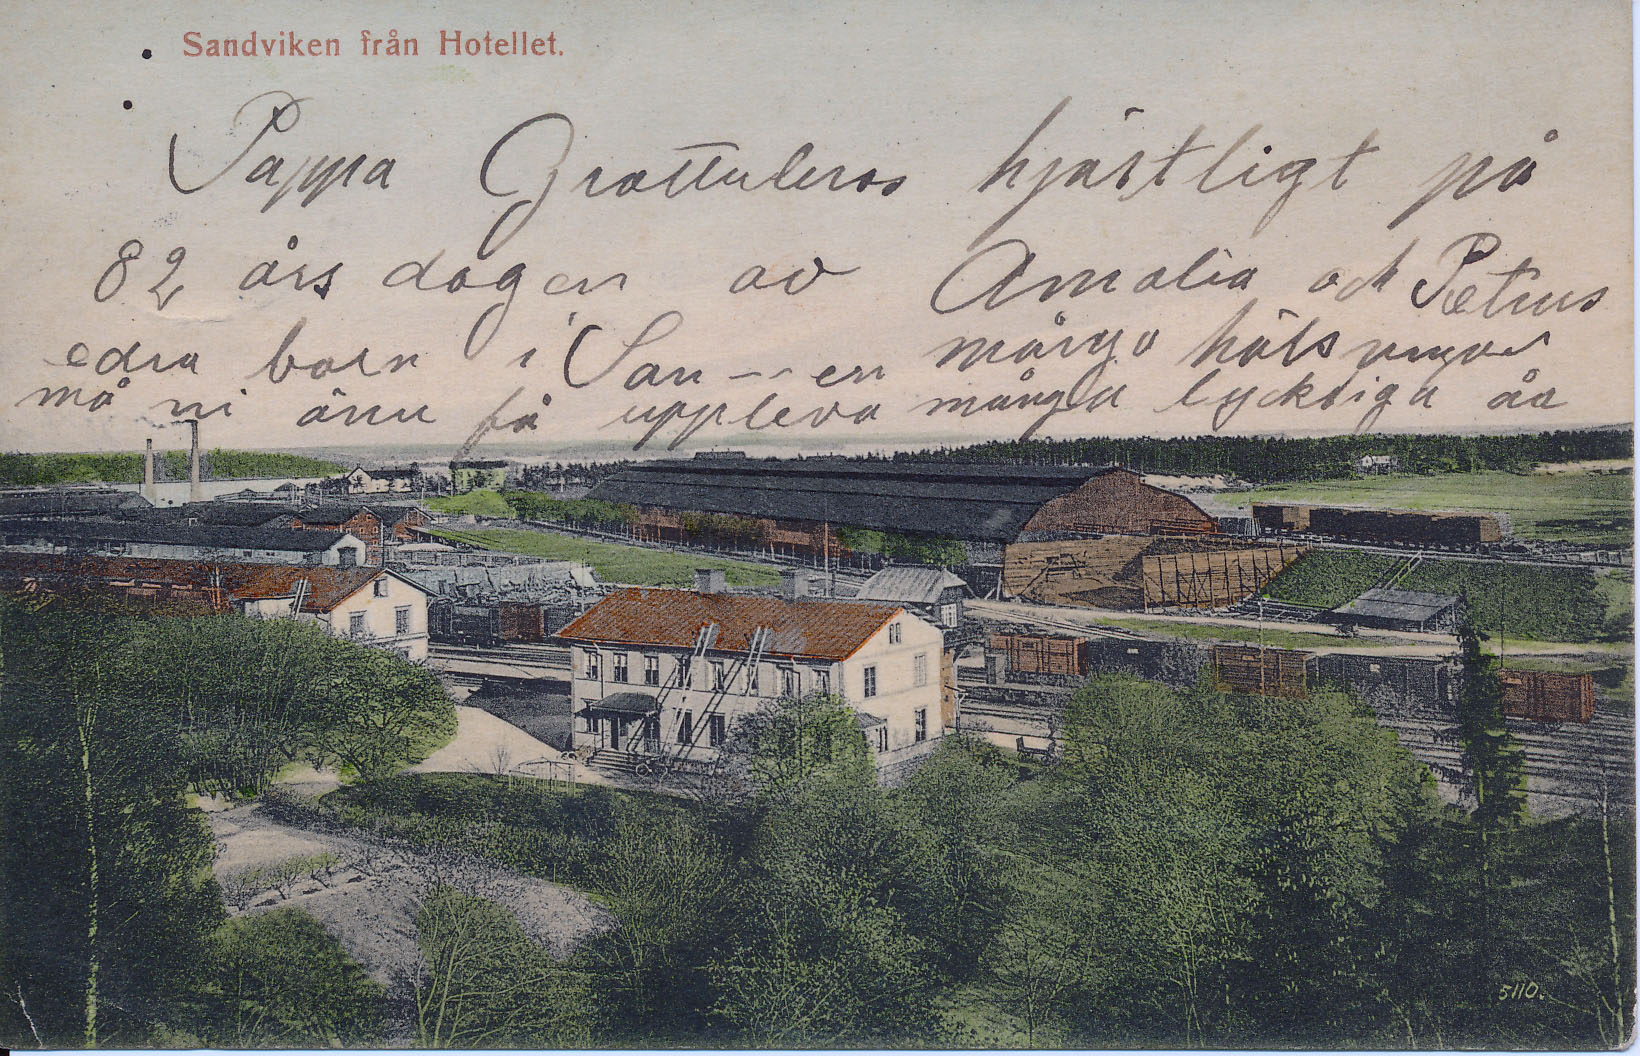 Sandviken från Hotellet.
Pappa Grattuleras hjärtligt på
82 års dagen av Amalia och Petrus
edra barn i San---en många hälsningar
må ni ännu få uppleva många lyckliga åa
5110.